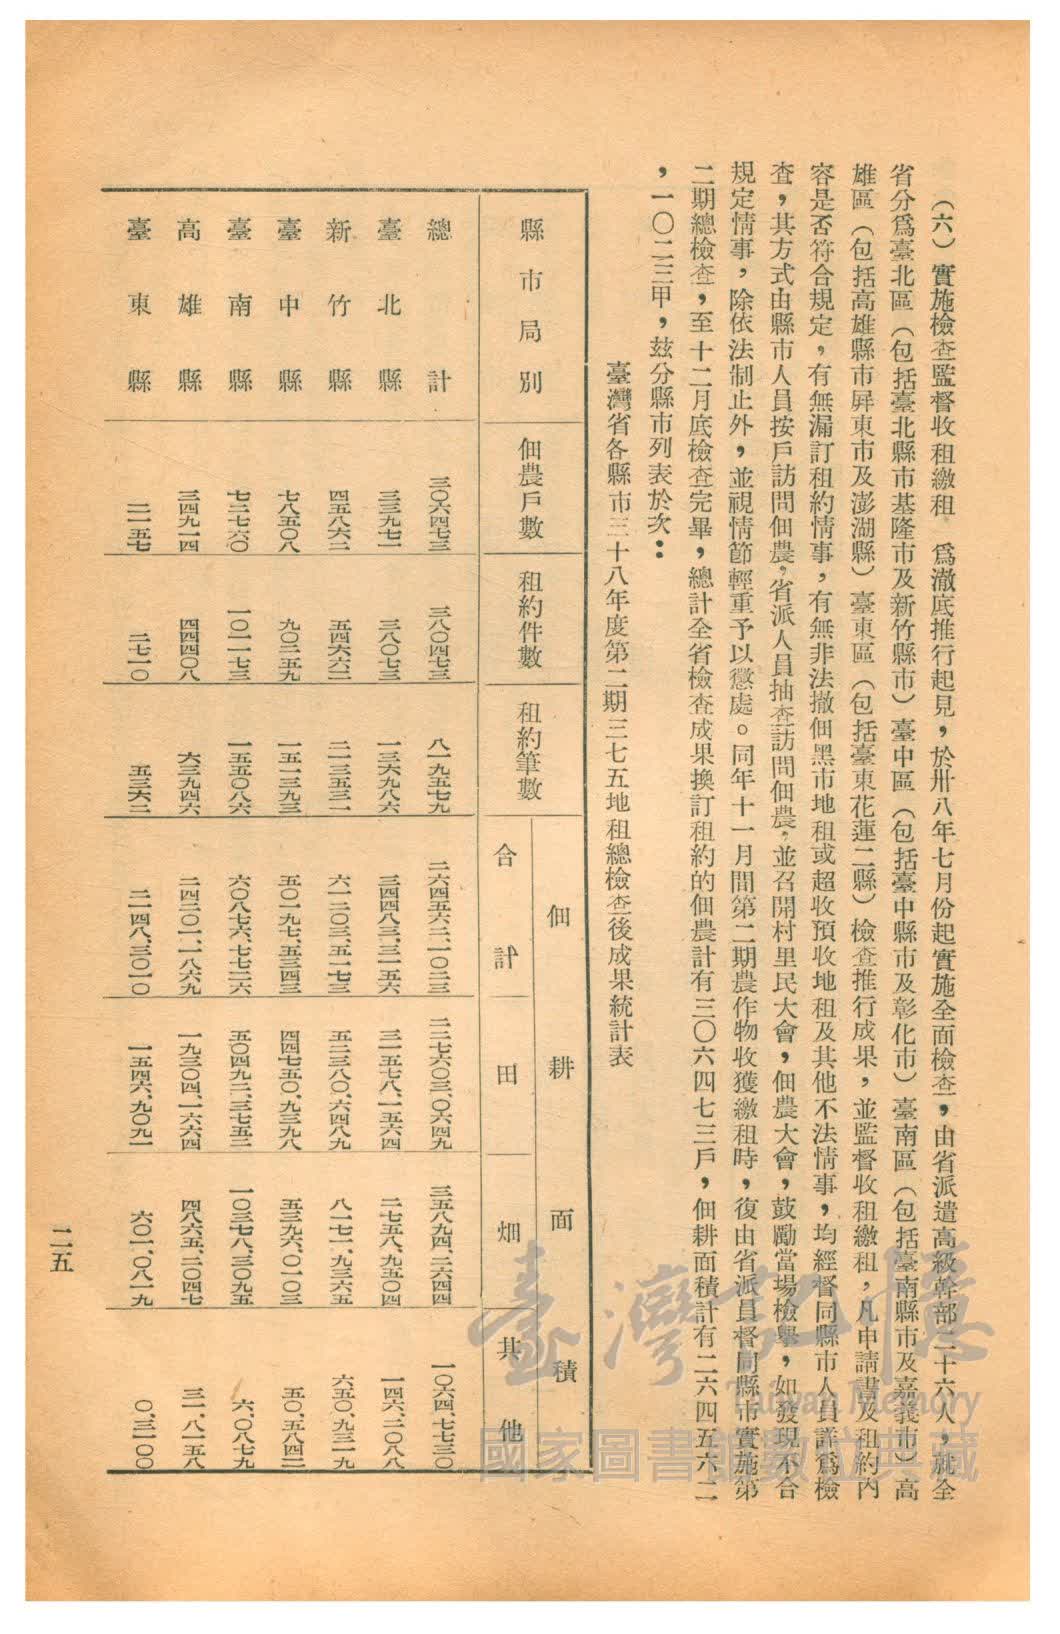 （六）實施檢查監督收租繳租　爲澈底推行起見，於卅八年七月份起實施全面檢查，由省派遣高級幹部二十六人，就全
省分爲臺北區（包括臺北縣市基隆市及新竹縣市）臺中區（包括臺中縣市及彰化市）臺南區（包括臺南縣市及嘉義市）高
雄區（包括高雄縣市屏東市及澎湖縣）臺東區（包括臺東花蓮二縣）檢查推行成果，並監督收租繳租，凡申請書及租約內
容是否符合規定，有無漏訂租約情事，有無非法撤佃黑市地租或超收預收地租及其他不法情事，均經督同縣市人員詳爲檢
查，其方式由縣市人員按戶訪問佃農，省派人員抽查訪問佃農，並召開村里民大會，佃農大會，鼓勵當場檢舉，如發現不合
規定情事，除依法制止外，並視情節輕重予以懲處。同年十一月間第二期農作物收獲繳租時，復由省派員督同縣市實施第
二期總檢查，至十二月底檢查完畢，總計全省檢查成果換訂租約的佃農計有三〇六四七三戶，佃耕面積計有二六四五六二
，一〇二三甲，茲分縣市列表於次：
臺灣省各縣市三十八年度第二期三七五地租總檢查後成果統計表
縣市局別　佃農戶數　租約件數　租約筆數　佃耕面積
合計　田　畑　其他
總計　三〇六四七三　三八〇四七三　八一九五七九　二六四五六二、一〇二三　二二七六〇三、〇六四九　三五八九四、二六四四　一〇六四、七七三〇
臺北縣　三三九七一　三八〇七三　一三六九八六　三四四八三、三一五六　三一五七八、一五六四　二七五八、九五〇四　一四六、二〇八八
新竹縣　四五八六二　五四六六二　二一三五三一　六一二〇三、五一七三　五二三八〇、六四八九　八一七一、九三六五　六五〇、九三一九
臺中縣　七八五〇八　九〇二五九　一五一三九三　五〇一九七、五三四三　四四七五〇、九三九八　五三九六、〇一〇三　五〇、五八四二
臺南縣　七二七六〇　一〇一一七三　一五五〇八六　六〇八七六、七七二六　五〇四九二、三七五二　一〇三七八、三〇九五　六、〇八七九
高雄縣　三四九一四　四四四〇八　六三九四六　二四二〇一、一八六九　一九三〇四、一六六四　四八六五、二〇四七　三一、八一五八
臺東縣　二一五七　二七一〇　五三六二　二一四八、三〇一〇　一五四六、九〇九一　六〇一、〇八一九　〇、三一〇〇
二五
臺灣記憶
Taiwan Memory
國家圖書館數位典藏